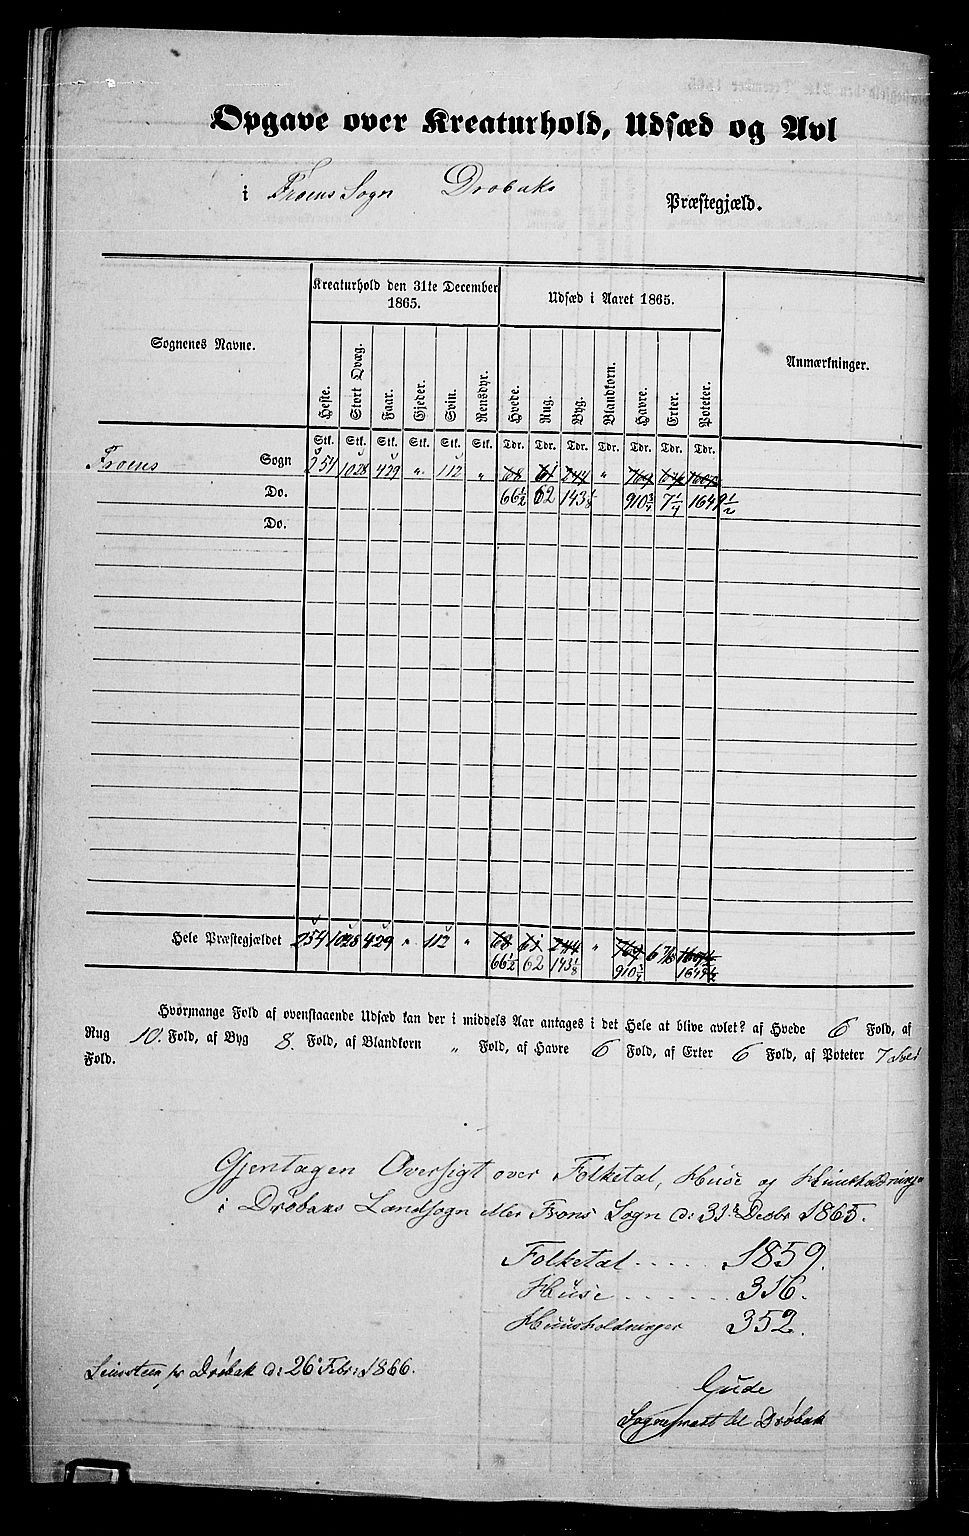 Opgave over Kreaturhold, Udsæd og Avl
i Froens Sogn Drobaks Præstegjæld.
Sognenes Navne.
Kreaturhold den 31te December 1865.
Udsæd i Aaret 1865.
Anmærkninger.
Heste. Stort Qvæg. Faar. Gjeder. Svin. Rensdyr. Hvede. Rug. Byg. Blandkorn. Havre. Erter. Poteter.
Stk. Stk. Stk. Stk. Stk. Stk. Tdr. Tdr. Tdr. Tdr. Tdr. Tdr. Tdr.
Froens Sogn 254 1028 429 " 112 " 68 61 244 "
Do. 66½ 62 143⅛ 910¾ 7¼ 1649½
Do.
Hele Præstegjældet 254 1028 429 " 112 " 68 61 244 "
66½ 62 143⅛
Hvormange Fold af ovenstaaende Udsæd kan der i middels Aar antages i det Hele at blive avlet? af Hvede 6 Fold, af
Rug 10. Fold, af Byg 8. Fold, af Blandkorn " Fold, af Havre 6 Fold, af Erter 6 Fold, af Poteter 7
Fold.
Gjentagen Oversigt over Folketal, Huse og
i Drøbaks Landsogn eller Frons Sogn d: 31te Decbr 1865.
Folketal ..... 1859.
Huse ....... 316.
Huusholdninger 352.
pr Drøbak d: 26 Febr 1866.
Gude
Sognepræst til Drøbak